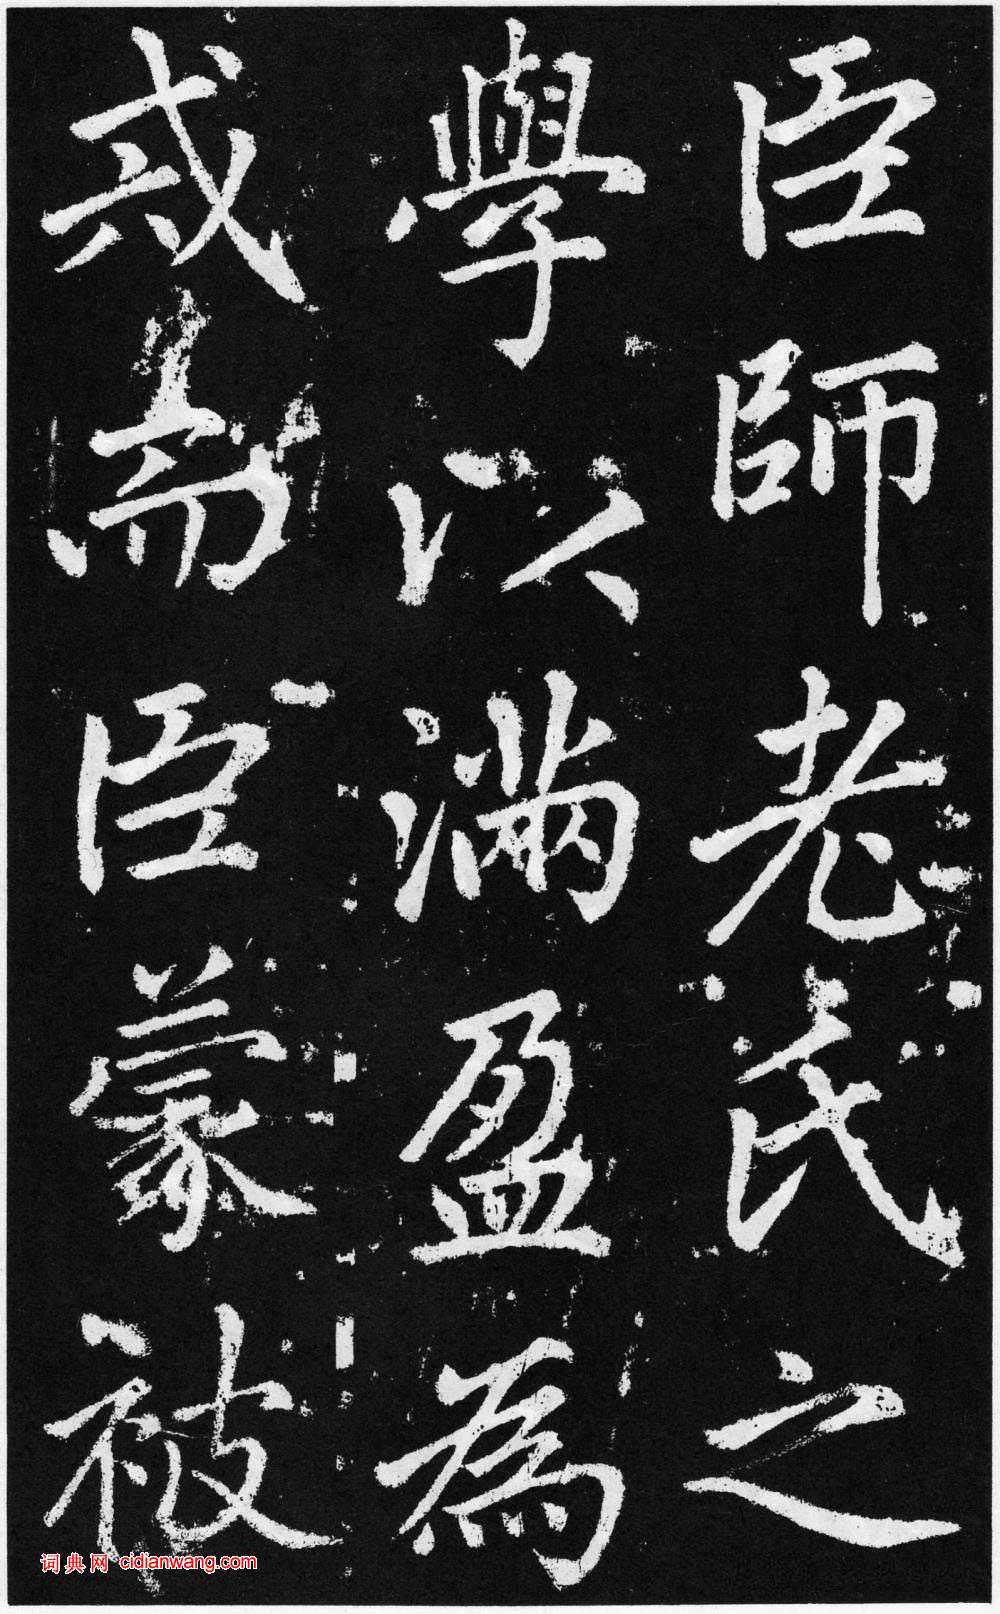 臣師老氏之
學以滿盈為
戒而臣蒙被
词典网 cidianwang.com